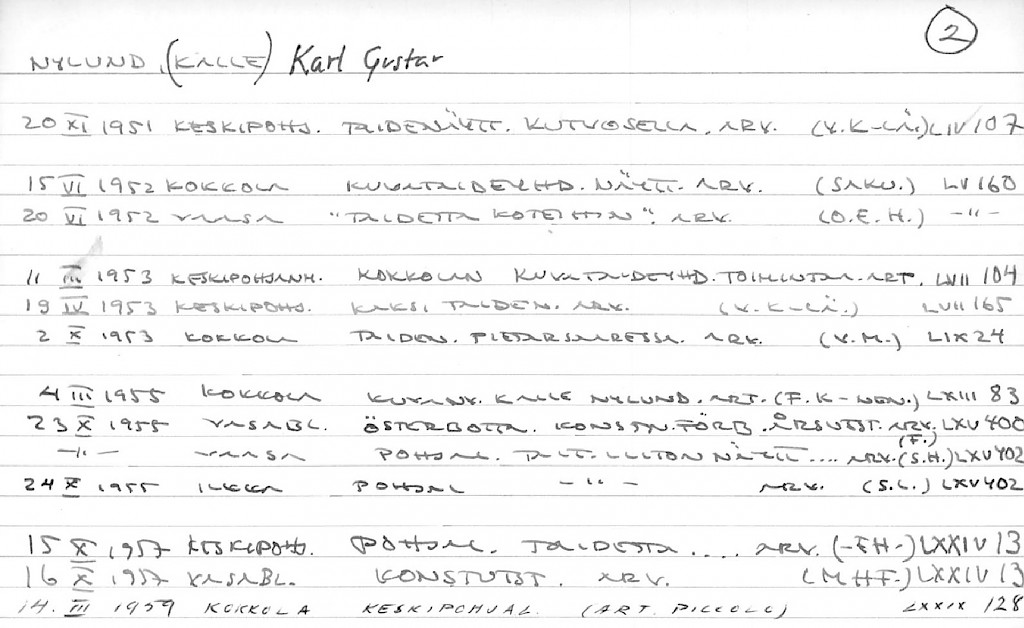 2
NYLUND, (KALLE) Karl Gustav
20 XI 1951 KESKIPOHJ. TAIDENÄYTT. KUTVOSELLA, ARV. (V.K-LÄ.) LIV 107
15 VI 1952 KOKKOLA KUVATAIDEYHD. NÄYTT. ARV. (SAKU.) LV 160
20 VI 1952 VAASA "TAIDETTA KOTEIHIN". ARV. (O.E.H.) -"-
11 III 1953 KESKIPOHJANM. KOKKOLAN KUVATAIDEYHD. TOIMINTAA. ART. LVII 104
19 IV 1953 KESKIPOHJ. KAKSI TAIDEN. ARV. (V.K-LÄ.) LVII 165
2 X 1953 KOKKOLA TAIDEN. PIETARSAARESSA. ARV. (V.M.) LIX 24
4 III 1955 KOKKOLA KUVANV. KALLE NYLUND. ART. (F.K-NEN.) LXIII 83
23 X 1955 VASABL. ÖSTERBOTTN. KONSTN. FÖRB. ÅRSUTST. ARV. (F.) LXV 400
-"- VAASA POHJAL. TAIT. LIITON NÄYTT.... ARV. (S.H.) LXV 402
24 X 1955 ILKKA POHJAL -"- ARV. (S.L.) LXV 402
15 X 1957 KESKIPOHJ. POHJAL. TAIDETTA.... ARV. (-EH-) LXXIV 13
16 X 1957 VASABL. KONSTUTST. ARV. (MHF.) LXXIV 13
14. III 1959 KOKKOLA KESKIPOHJAL. (ART. PICCOLO) LXXIX 128